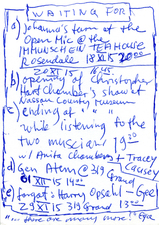 WAITING FOR
a) Johanna's turn at the
Open Mic @ the
TEAHOUSE
Rosendale 18 XIS 2000
20 XII 15 16:45
b) opening of Christopher
Hart Chamber's show at
Nassau County Museum
c) ending of " "
while listening to the
two musician 19 30
w/ Anita Chambers + Tracey
Causey
d) Gen Atem @ 319 Grand
XII 15 14 00
e) forgot: Harry Opsahl - Geel
29 XI 15 319 Grand 13 00
"... there are many more!"